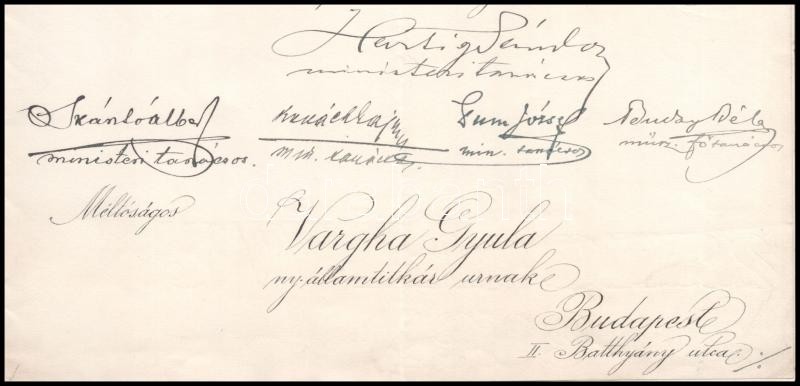 Hartig Sándor
ministeri tanácsos
Szántó Albert
ministeri tanácsos.
min. tanácsos.
Gum József
min. tanácsos
Buday Béla
műsz. főtanácsos
Méltóságos
Vargha Gyula
ny. államtitkár urnak
Budapest
II. Batthyány utca